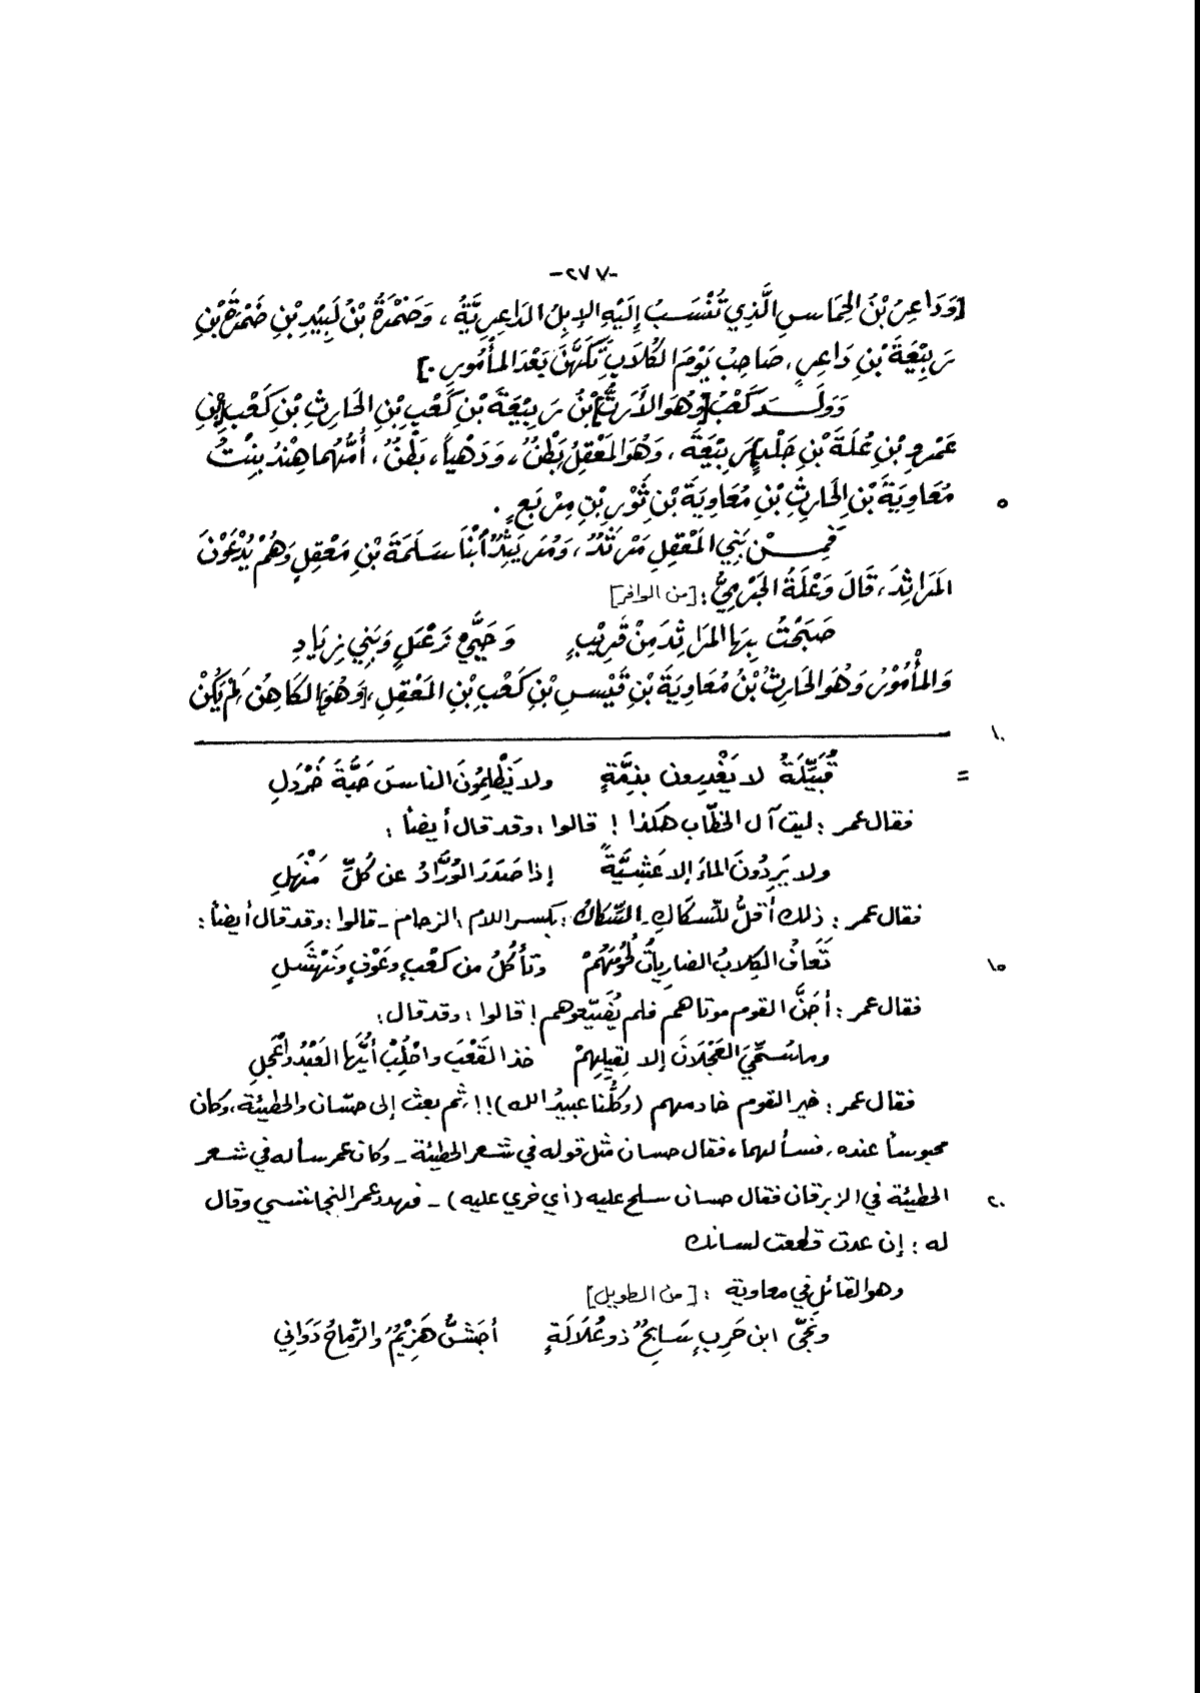 -٢٧٧-
[وَدَاعِرُ بْنُ الحِمَاسِ الَّذِي تُنْسَبُ إِلَيْهِ الإِبِلُ الدَاعِرِيَّةُ ، وَضَمْرَةُ بْنُ لَبِيْدِ بْنِ ضَمْرَةَ بْنِ
رَبِيْعَةَ بْنِ دَاعِرٍ، صَاحِبُ يَوْمِ الكُلَابِ تَكَهَّنَ بَعْدَ المَأْمُورِ .]
وَوَلَــدَ كَعْبُ [وَهُوَ الأَرَتُّ] بْنُ رَبِيْعَةَ بْنِ كَعْبِ بْنِ الحَارِثِ بْنِ كَعْبِ [بْنِ
عَمْرِو بْنِ عُلَةَ بْنِ جَلْدٍ] رَبِيْعَةَ ، وَهُوَ المَعْقِلُ بَطْنٌ، وَدَهْياً، بَطْنٌ، أُمُّهُما هِنْدُ بِنْتُ
مُعَاوِيَةَ بْنِ الحَارِثِ بْنِ مُعَاوِيَةَ بْنِ ثَوْرِ بْنِ مرْتِعٍ . ٥
فَمِــنْ بَنِي المَعْقِلِ مَرْثَدٌ، وَمُرَيْثِدٌ أبْنَا سَلَمَةَ بْنِ مَعْقِلٍ وَهُمْ يُدْعَوْنَ
المَرَاثِدَ، قَالَ وَعْلَةُ الجَرْمِيُّ: [من الوافر]
صَبَحْتُ بِهَا المَرَاثِدَ مِنْ قَرِيْبٍ وَحَيَّيْ دَعْبَلٍ وَبَنِي زِيَادِ
وَالمَأْمُوْرُ وَهُوَ الحَارِثُ بْنُ مُعَاوِيَةَ بْنِ قَيْسِ بْنِ كَعْبِ بْنِ المَعْقِلِ، [وَهُوَ] الكَاهِنُ، لَمْ يَكُنْ
١٠
= قُبَيِّلَةٌ لا يَغْدِرون بذِمَّةٍ ولا يَظْلِمُونَ الناسَ حَبَّةَ خَرْدَلِ
فقال عمر : ليت آل الخطّاب هكذا ! قالوا : وقد قال أيضاً :
ولا يَرِدُونَ الماءَ إلا عَشِيَّةً إذا صَدَرَ الوُرَّادُ عن كُلِّ مَنْهَلِ
فقال عمر : ذلك أقلُّ للسّكاكِ - السِّكاك : بكسر اللام الزحام - قالوا : وقد قال أيضاً :
تَعَافُ الكِلابُ الضارِياتُ لُحُوْمَهُمْ وتأكُلُ من كَعْبٍ وعَوْفٍ ونَهْشَلِ ١٥
فقال عمر : أجَنَّ القوم موتاهم فلم يُضَيّعوهم ! قالوا : وقد قال :
وماسُمِّيَ العَجْلَانَ إلا لِقِيْلِهِمْ خذ القَعْبَ واحْلُبْ أيُّها العَبْدُ واعْجَلِ
فقال عمر : خير القوم خادمهم (وكُلُّنا عبيدُ الله)!! ، ثم بعث إلى حسّان والحطيئة، وكان
محبوساً عنده ، فسألهما ، فقال حسان مثل قوله في شعر الحطيئة - وكان عمر سأله في شعر
الحطيئة في الزبرقان فقال حسان سلح عليه (أي خري عليه) - فهدد عمر النجاشي وقال ٢٠
له : إن عدت قطعت لسانك
وهو القائل في معاوية : [من الطويل]
ونَجّى ابن حَرِبٍ سَابِحٌ ذو عُلَالَةٍ أجَشُّ هَزِيْمٌ والرّماحُ دَوَاني